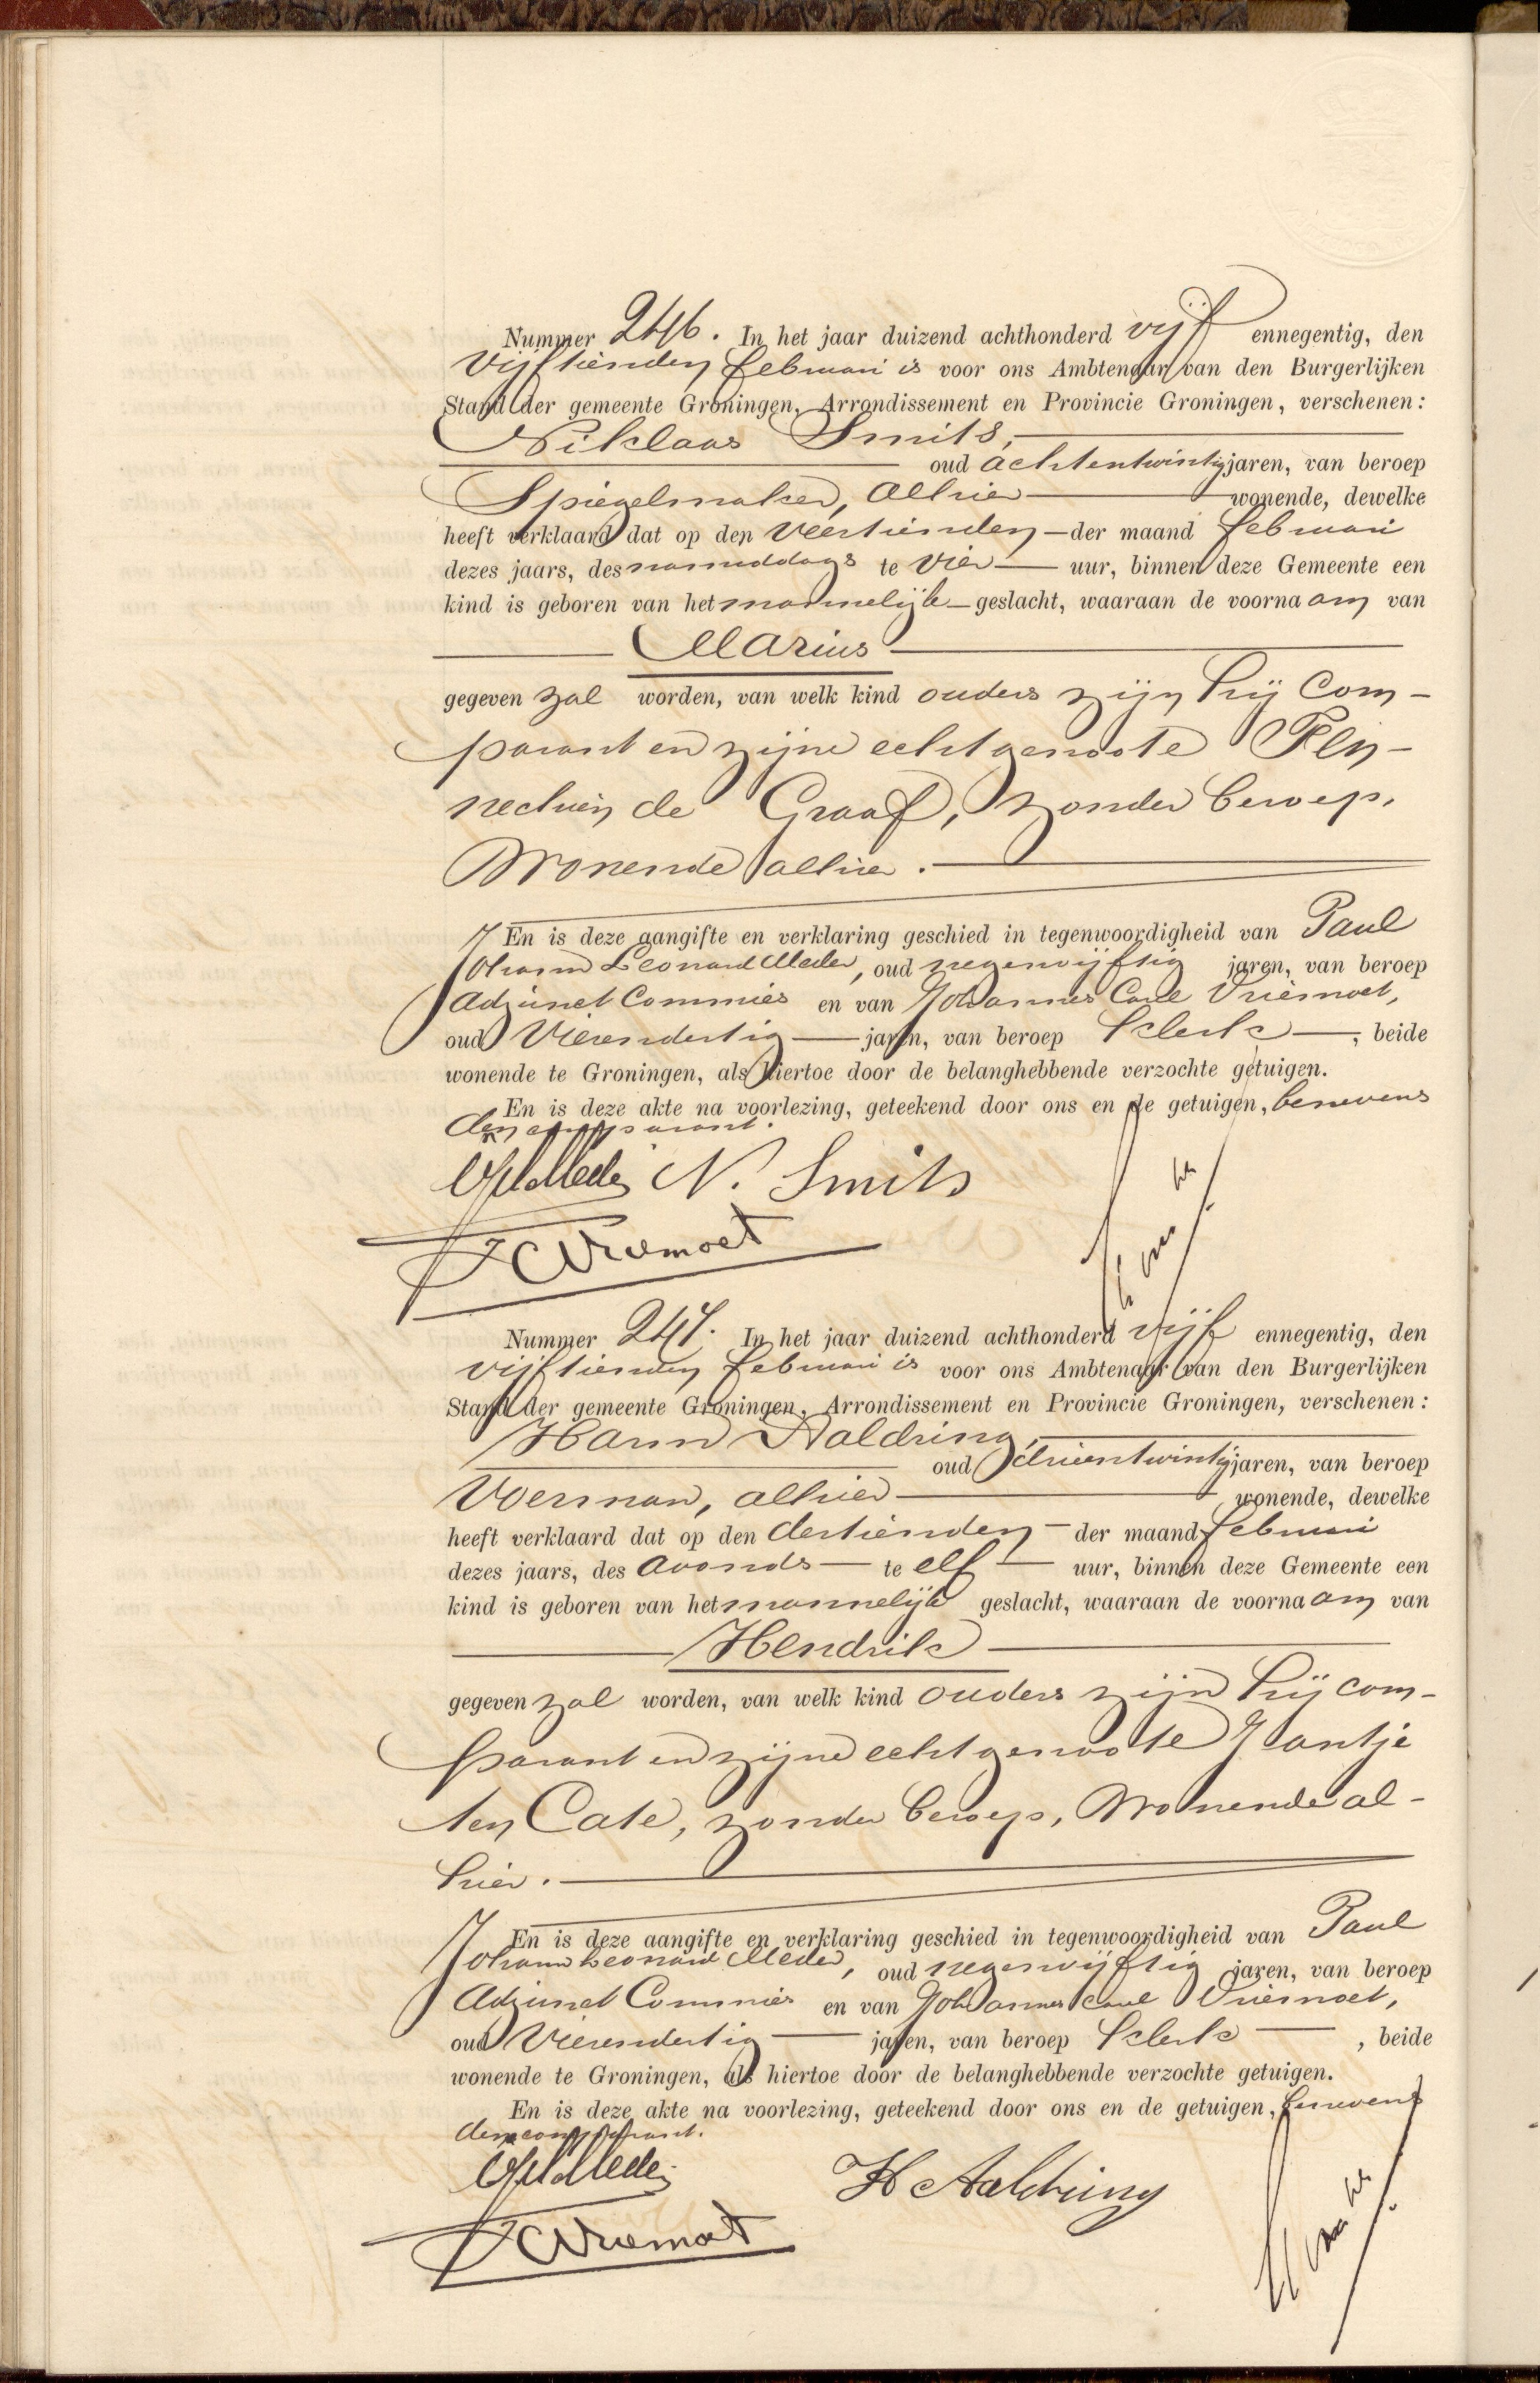 Nummer 246. In het jaar duizend achthonderd vijf ennegentig, den
Vijftienden februari is voor ons Ambtenaar van den Burgerlijken
Stand der gemeente Groningen, Arrondissement en Provincie Groningen, verschenen:
Niklaas Smits,
oud achtentwintig jaren, van beroep
Spiegelmaker, alhier wonende, dewelke
heeft verklaard dat op den Veertienden der maand februari
dezes jaars, des namiddags te vier uur, binnen deze Gemeente een
kind is geboren van het mannelijk geslacht, waaraan de voornaam van
Marius
gegeven zal worden, van welk kind ouders zijn hij Com-
parant en zijne echtgenoote Fen-
nechien de Graaf, zonder beroep,
Wonende alhier.
En is deze aangifte en verklaring geschied in tegenwoordigheid van Paul
Johann Leonard Meder, oud negenvijftig jaren, van beroep
Adjunct Commies en van Johannes Carel Vriemoet,
oud Vierendertig jaren, van beroep klerk, beide
wonende te Groningen, als hiertoe door de belanghebbende verzochte getuigen.
En is deze akte na voorlezing, geteekend door ons en de getuigen, benevens
den comparant.
Meder N. Smits
JC Vriemoet
Nummer 247. In het jaar duizend achthonderd vijf ennegentig, den
vijftienden februari is voor ons Ambtenaar van den Burgerlijken
Stand der gemeente Groningen, Arrondissement en Provincie Groningen, verschenen:
Harm Aaldring,
oud drieentwintig jaren, van beroep
Voerman, alhier wonende, dewelke
heeft verklaard dat op den dertienden der maand februari
dezes jaars, des avonds te elf uur, binnen deze Gemeente een
kind is geboren van het mannelijk geslacht, waaraan de voornaam van
Hendrik
gegeven zal worden, van welk kind ouders zijn hij com-
parant en zijne echtgenoote Jantje
ten Cate, zonder beroep, Wonende al-
hier.
En is deze aangifte en verklaring geschied in tegenwoordigheid van Paul
Johann Leonard Meder, oud negenvijftig jaren, van beroep
Adjunct Commies en van Johannes Carel Vriemoet,
oud Vierendertig jaren, van beroep klerk, beide
wonende te Groningen, als hiertoe door de belanghebbende verzochte getuigen.
En is deze akte na voorlezing, geteekend door ons en de getuigen, benevens
den comparant.
Meder H Aaldring
JC Vriemoet